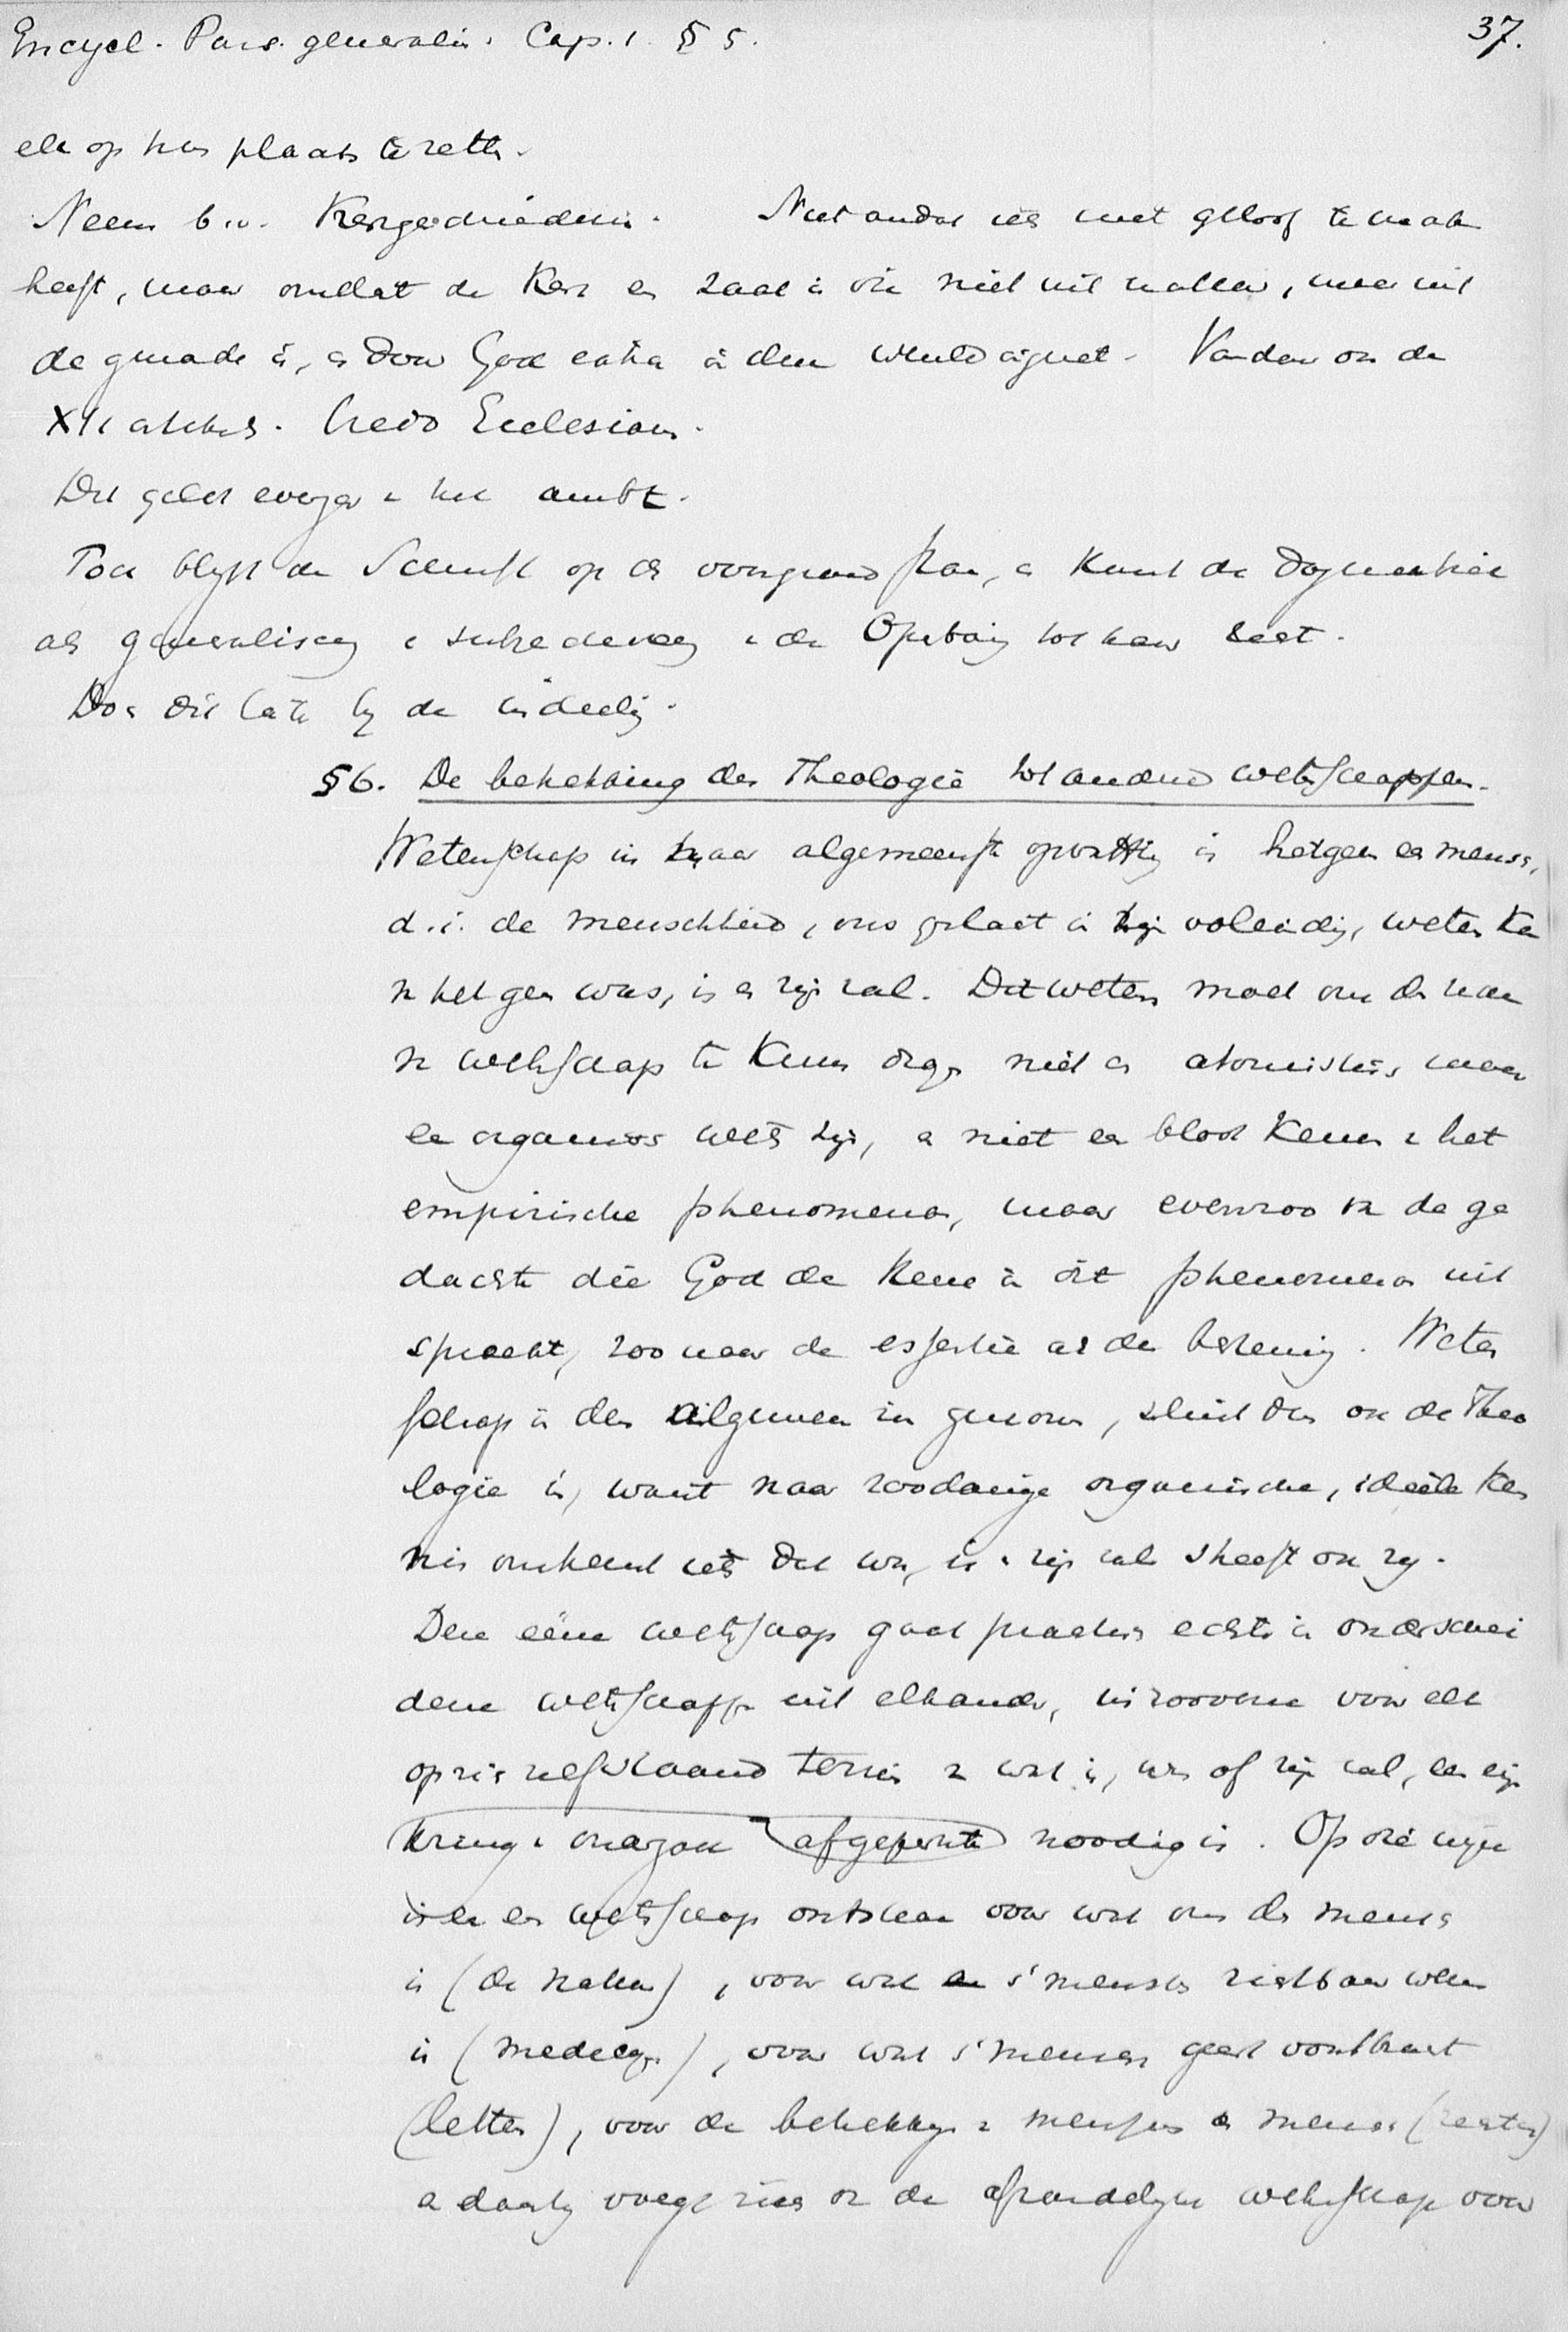 Encycl. Pars. generalis. Cap. 1. § 5. 37.
elk op hun plaats te zetten.
Neem b.v. Kerkgeschiedenis. Niet omdat iets met geloof te maken
heeft, maar omdat de Kerk een zaak is die niet uit natuur, maar uit
de genade is, en door God extra in deze wereld . Vandaar ook de
XII artikels. Credo Ecclesiam.
Dit geldt evenzeer v het ambt.
Toch blijft de Schrift op den voorgrond staan, en komt de Dogmatiek
als generaliseering v de Openbaring tot haar recht.
Doch dit later bij de indeeling.
§ 6. De betrekking der Theologie tot andere wetenschappen.
Wetenschap in haar algemeenste opvatting is hetgeen een mensch,
d.i. de menschheid, ons gedacht in zijn voleinding, weten kan
v hetgeen was, is en zijn zal. Dit weten moet om den naam
v wetenschap te kunnen dragen niet een atomistisch maar
een organisch weten zijn, en niet een bloot kennen v het
empirische phenomenon, maar evenzoo van de ge
dachte die God de Heere in dit phenomenon uit
sprak, zoo naar de essentie als den bestemming. Weten
schap in den algemeenen zin genomen, sluit dus ook de Theo
logie in, want naar zoodanige organische, ideëele ken
nis omtrent iets dat was, is en zijn zal streeft ook zij.
Deze ééne wetenschap gaat practisch echter in onderschei
dene wetenschappen uit elkander, inzooverre voor elk
op zich zelf staand terrein v wat is, was of zijn zal, een eigen
kring v onderzoek afgeperkte noodig is. Op die wijze
is er een wetenschap ontstaan voor wat om den mensch
is (de natuur), voor wat s'menschen zichtbaar wezen
is (medicijnen), voor wat s'menschen geest voortbrengt
(letteren), voor de betrekkingen v menschen en menschen (rechten)
en daarbij voegt zich ook de afzonderlijke wetenschap voor